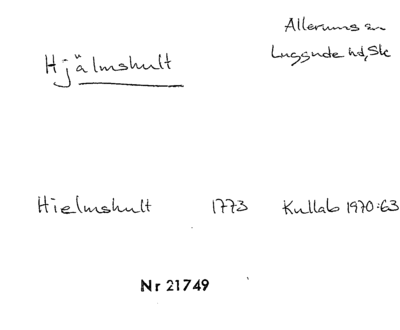 Hjälmshult
Allerums sn
Luggude hd, Sk
Hielmshult 1773 Kullab 1970:63
Nr 21749